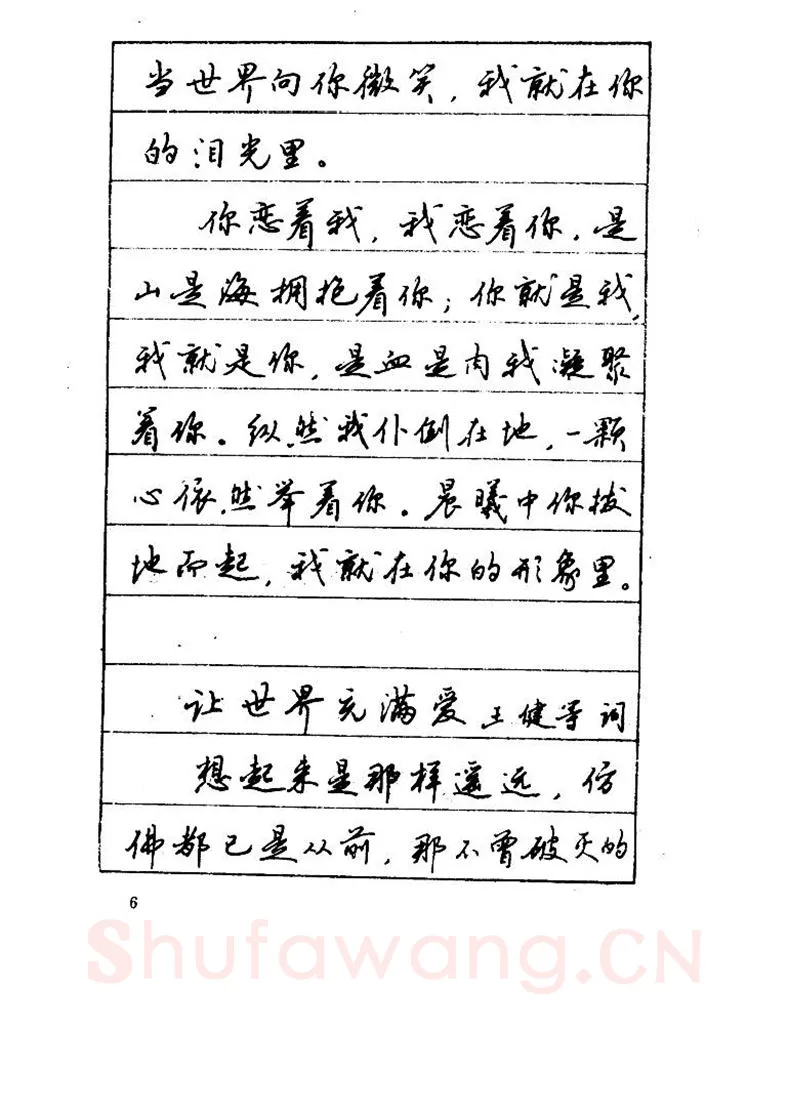 当世界向你微笑，我就在你
的泪光里。
你恋着我，我恋着你，是
山是海拥抱着你；你就是我，
我就是你，是血是肉我凝聚
着你。纵然我仆倒在地，一颗
心依然举着你。晨曦中你拔
地而起，我就在你的形象里。
让世界充满爱 王健等词
想起来是那样遥远，仿
佛都已是从前，那不曾破灭的
6
Shufawang.CN